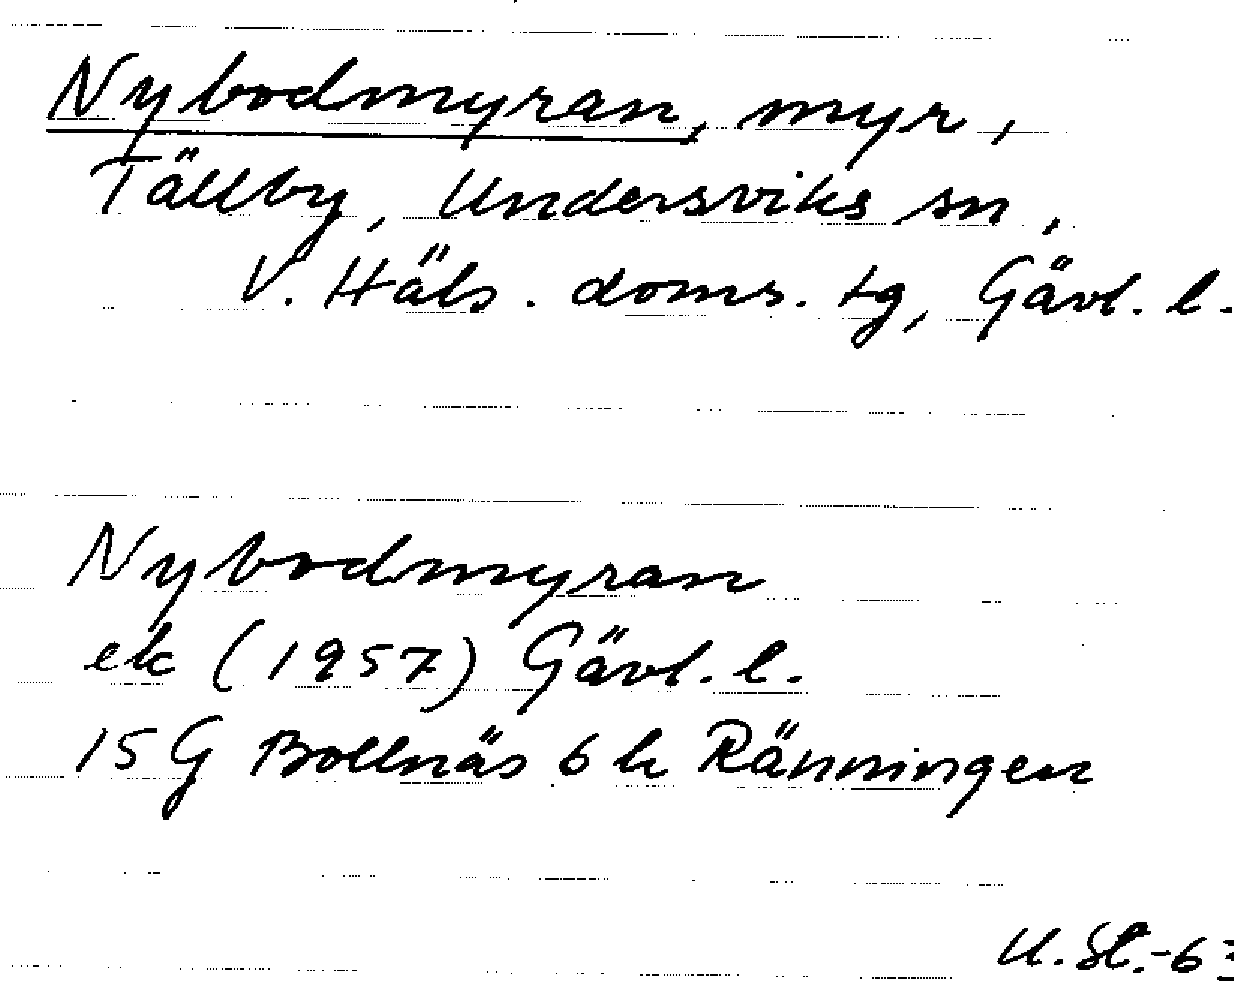 Nybodmyran, myr,
Tällby, Undersviks sn,
V. Häls. doms. tg, Gävl. l.
Nybodmyran
ek (1957) Gävl. l.
15 G Bollnäs 6 h Ränningen
U. Sl.-63